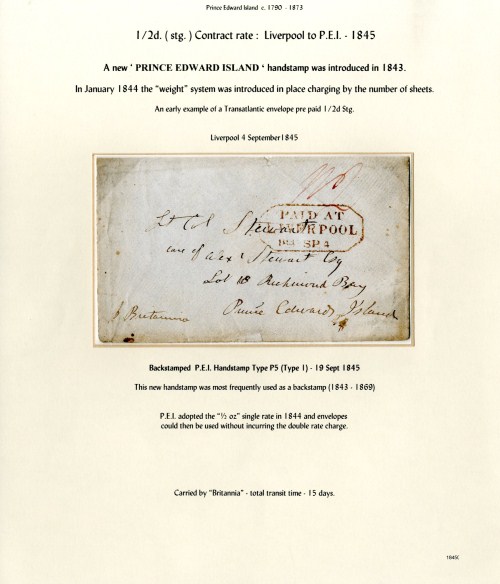 Prince Edward Island c. 1790 - 1873
1/2d. ( stg. ) Contract rate : Liverpool to P.E.I. - 1845
A new ' PRINCE EDWARD ISLAND ' handstamp was introduced in 1843.
In January 1844 the "weight" system was introduced in place charging by the number of sheets.
An early example of a Transatlantic envelope pre paid 1/2d Stg.
Liverpool 4 September1845
PAID AT
LIVERPOOL
SP 4
Lt Col Stewart
care of Alex Stewart Esq
Lot Richmond Bay
Prince Edwards Island
Britannia
Backstamped P.E.I. Handstamp Type P5 (Type 1) - 19 Sept 1845
This new handstamp was most frequently used as a backstamp (1843 - 1869)
P.E.I. adopted the "½ oz" single rate in 1844 and envelopes
could then be used without incurring the double rate charge.
Carried by "Britannia" - total transit time - 15 days.